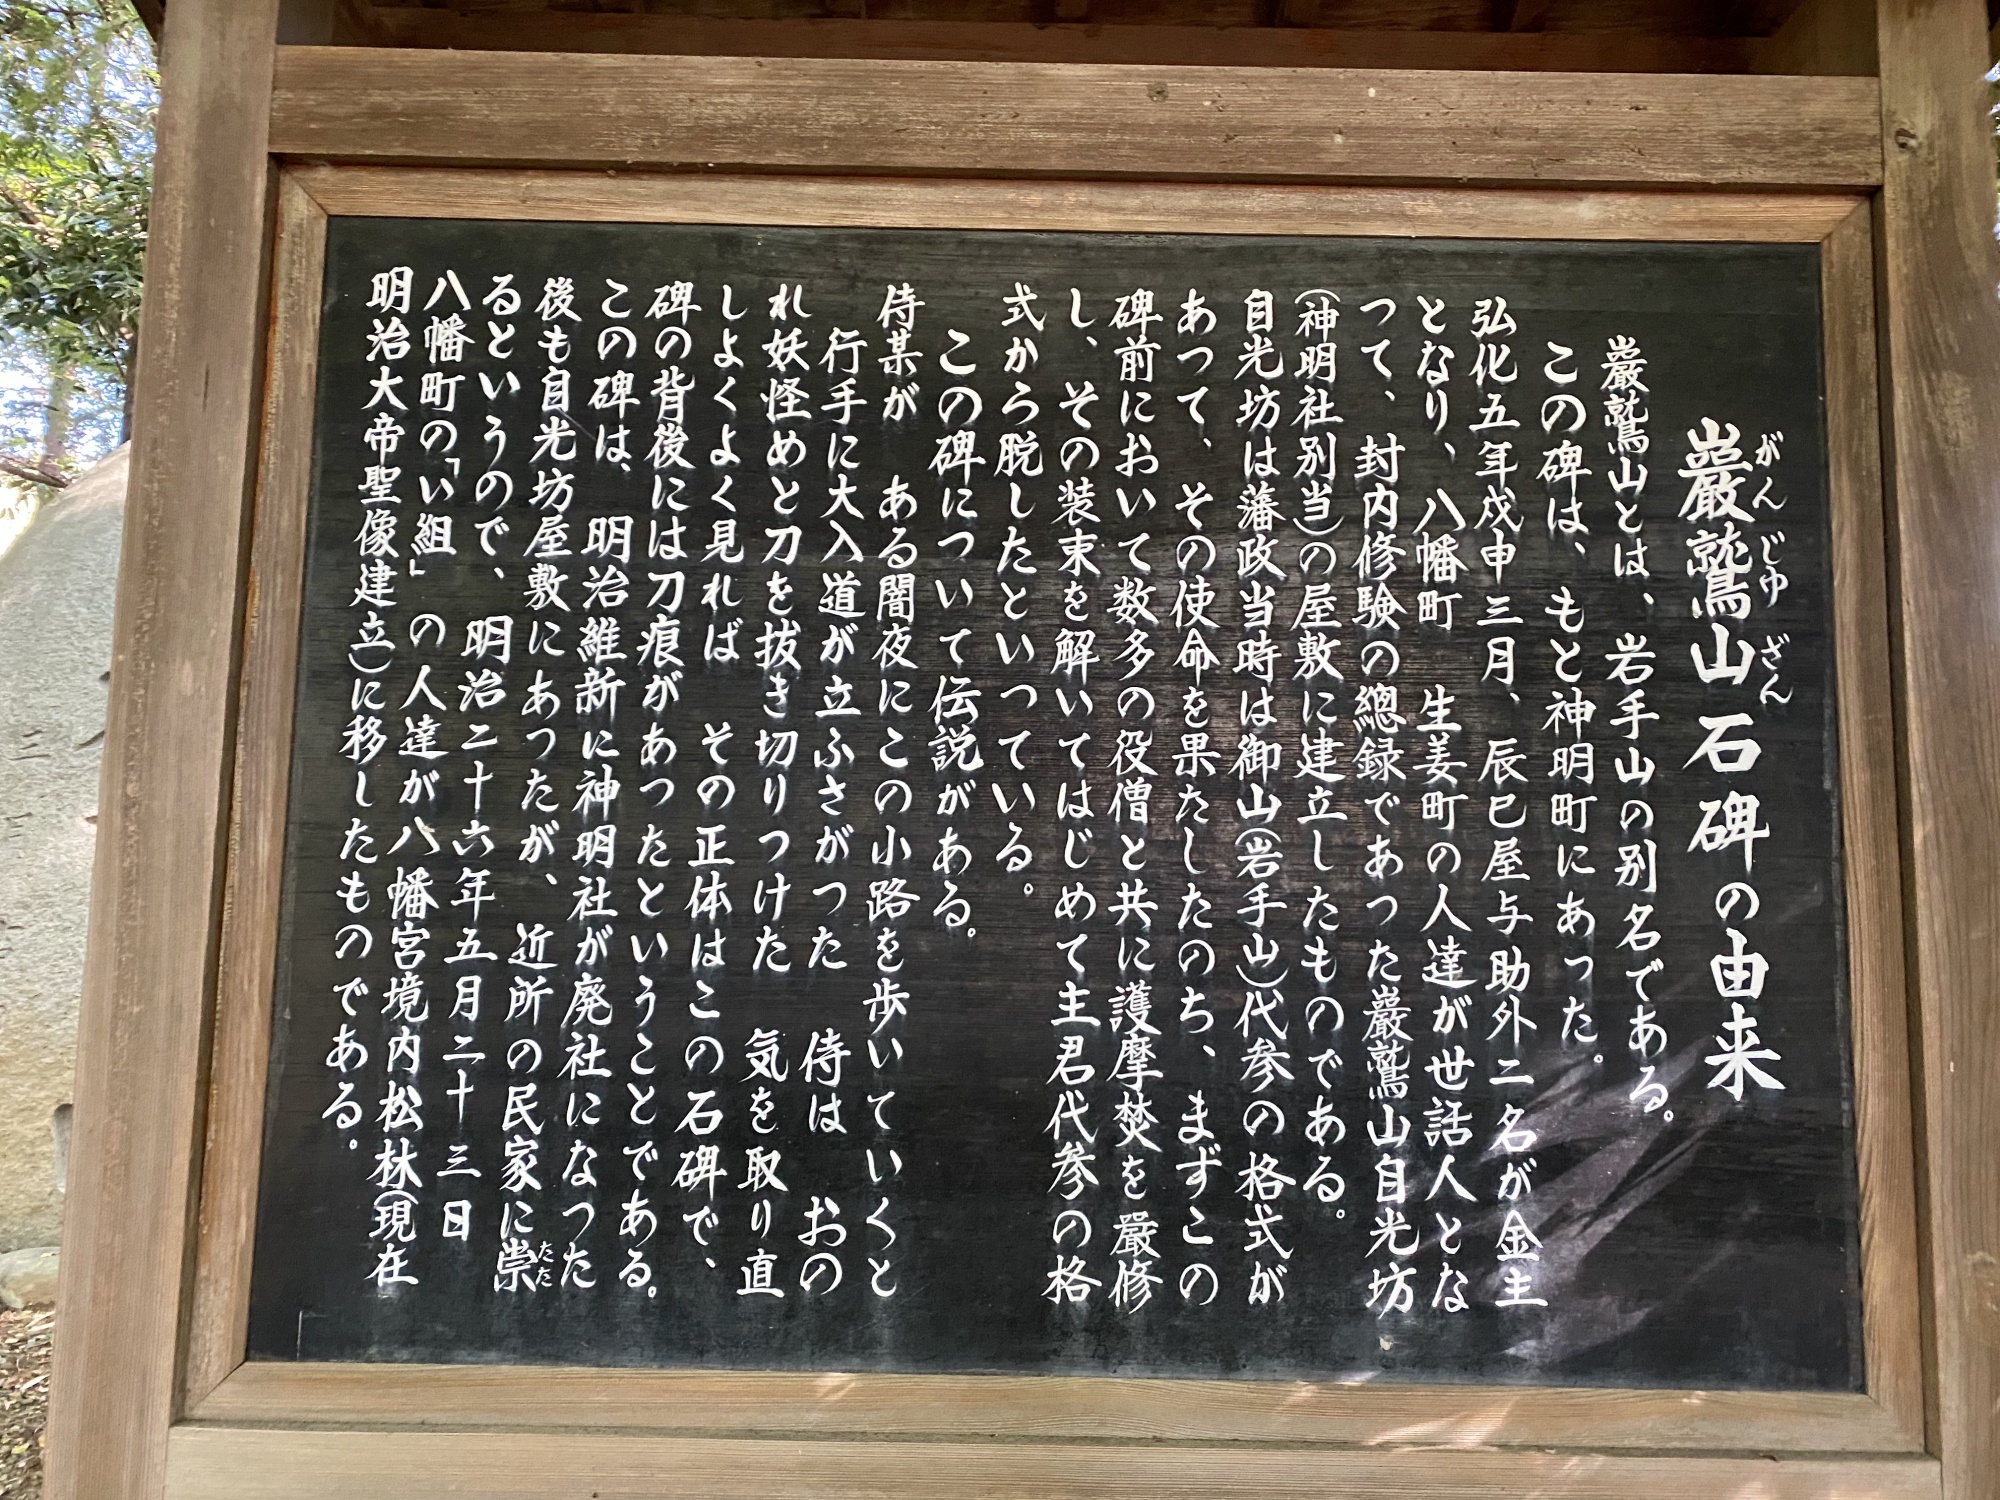 巖鷲山石碑の由来
がんじゆざん
巖鷲山とは、岩手山の別名である。
この碑は、もと神明町にあった。
弘化五年戊申三月、辰巳屋与助外二名が金主
となり、八幡町　生姜町の人達が世話人とな
つて、封内修験の總録であった巖鷲山自光坊
(神明社別当)の屋敷に建立したものである。
自光坊は藩政当時は御山(岩手山)代参の格式が
あつて、その使命を果たしたのち、まずこの
碑前において数多の役僧と共に護摩焚を嚴修
し、その装束を解いてはじめて主君代参の格
式から脱したといつている。
この碑について伝説がある。
侍某が　ある闇夜にこの小路を歩いていくと
行手に大入道が立ふさがつた　侍は　おの
れ妖怪めと刀を抜き切りつけた　気を取り直
しよくよく見れば　その正体はこの石碑で、
碑の背後には刀痕があつたということである。
この碑は、明治維新に神明社が廃社になった
後も自光坊屋敷にあつたが、近所の民家に祟
たた
るというので、明治二十六年五月二十三日
八幡町の「い組」の人達が八幡宮境内松林(現在
明治大帝聖像建立)に移したものである。